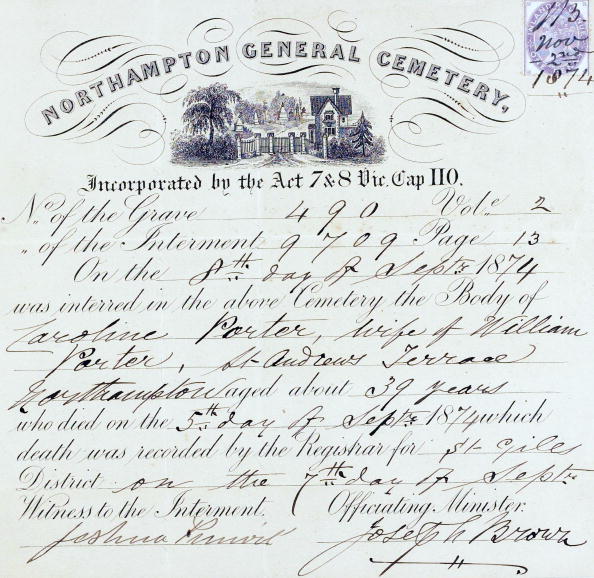 J/B.
Nov
2nd
1874
NORTHAMPTON GENERAL CEMETERY,
Incorporated by the Act 7 & 8 Vic. Cap 110.
No. of the Grave 490 Vol.e 2
„ of the Interment 9709 Page 13
On the 8th day of Septr 1874
was interred in the above Cemetery the Body of
Caroline Porter, wife of William
Porter, St Andrews Terrace
Northampton aged about 39 years
who died on the 5th day of Septr 1874 which
death was recorded by the Registrar for St Giles
District on the 7th day of Septr
Witness to the Interment. Officiating Minister.
Joshua Joseph Brown